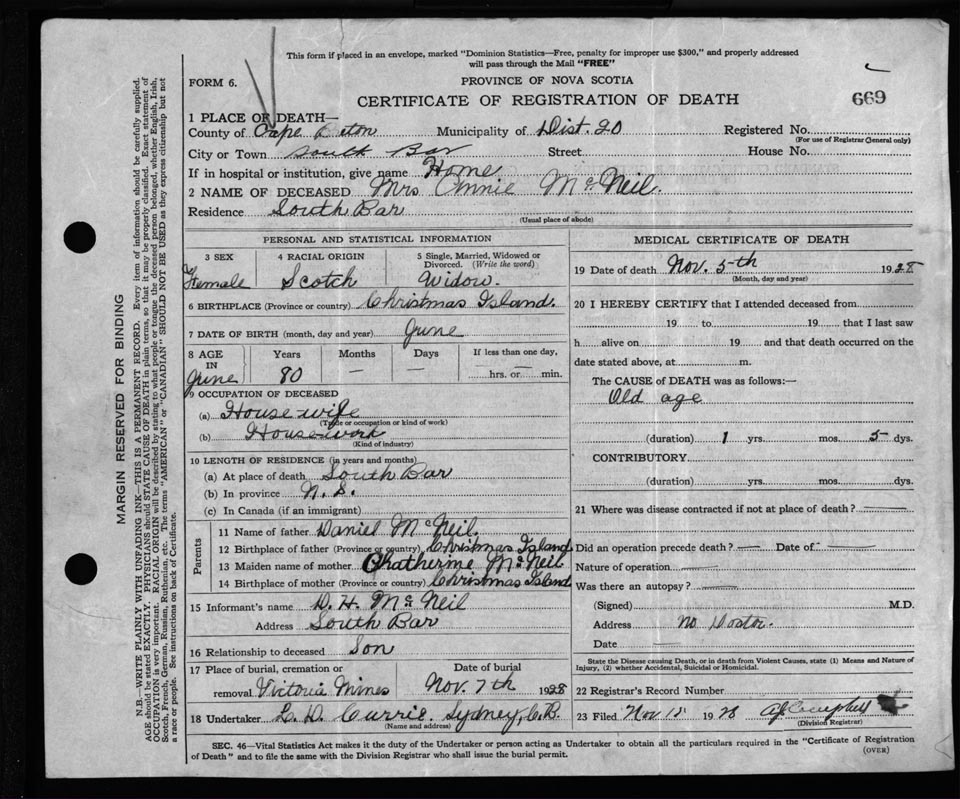 This form if placed in an envelope, marked "Dominion Statistics—Free, penalty for improper use $300," and properly addressed
will pass through the Mail "FREE"
FORM 6.
PROVINCE OF NOVA SCOTIA
CERTIFICATE OF REGISTRATION OF DEATH
669
1 PLACE OF DEATH—
County of Cape Breton Municipality of Dist. 20 Registered No.
(For use of Registrar General only)
City or Town South Bar Street House No.
If in hospital or institution, give name Home
2 NAME OF DECEASED Mrs Annie McNeil.
Residence South Bar
(Usual place of abode)
PERSONAL AND STATISTICAL INFORMATION
3 SEX 4 RACIAL ORIGIN 5 Single, Married, Widowed or
Divorced. (Write the word)
Female Scotch Widow.
6 BIRTHPLACE (Province or country) Christmas Island.
7 DATE OF BIRTH (month, day and year) June
8 AGE IN Years Months Days If less than one day,
June 80 — — hrs. or min.
9 OCCUPATION OF DECEASED
(a) House wife
(Trade or occupation or kind of work)
(b) House-work
(Kind of industry)
10 LENGTH OF RESIDENCE (in years and months)
(a) At place of death South Bar
(b) In province N. S.
(c) In Canada (if an immigrant)
Parents
11 Name of father Daniel McNeil.
12 Birthplace of father (Province or country) Christmas Island
13 Maiden name of mother Chatherine McNeil
14 Birthplace of mother (Province or country) Christmas Island
15 Informant's name D. H. McNeil
Address South Bar
16 Relationship to deceased Son
17 Place of burial, cremation or Date of burial
removal Victoria Mines Nov. 7th 1928
18 Undertaker L. D. Currie. Sydney, C.B.
(Name and address)
MEDICAL CERTIFICATE OF DEATH
19 Date of death Nov. 5th 1928
(Month, day and year)
20 I HEREBY CERTIFY that I attended deceased from
19 to 19 that I last saw
h alive on 19 and that death occurred on the
date stated above, at m.
The CAUSE of DEATH was as follows:—
Old age
(duration) 1 yrs. mos. 5 dys.
CONTRIBUTORY
(duration) yrs. mos. dys.
21 Where was disease contracted if not at place of death?
Did an operation precede death? — Date of
Nature of operation
Was there an autopsy?
(Signed) M.D.
Address No Doctor.
Date
State the Disease causing Death, or in death from Violent Causes, state (1) Means and Nature of
Injury, (2) whether Accidental, Suicidal or Homicidal.
22 Registrar's Record Number
23 Filed Nov 1928
(Division Registrar)
SEC. 46—Vital Statistics Act makes it the duty of the Undertaker or person acting as Undertaker to obtain all the particulars required in the "Certificate of Registration
of Death" and to file the same with the Division Registrar who shall issue the burial permit.
(OVER)
MARGIN RESERVED FOR BINDING
N.B.—WRITE PLAINLY WITH UNFADING INK—THIS IS A PERMANENT RECORD. Every item of information should be carefully supplied.
AGE should be stated EXACTLY. PHYSICIANS should STATE CAUSE OF DEATH in plain terms, so that it may be properly classified. Exact statement of
OCCUPATION is very important. RACIAL ORIGIN will be described by stating to what people or tongue the deceased person belonged, whether English, Irish,
Scotch, French, German, Russian, Ruthenian, etc. The terms "AMERICAN" or "CANADIAN" SHOULD NOT BE USED as they express citizenship but not
a race or people. See instructions on back of Certificate.